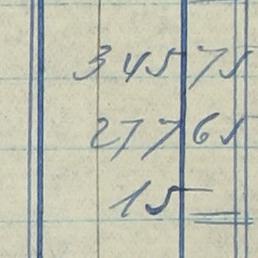 345 75
277 65
15 =